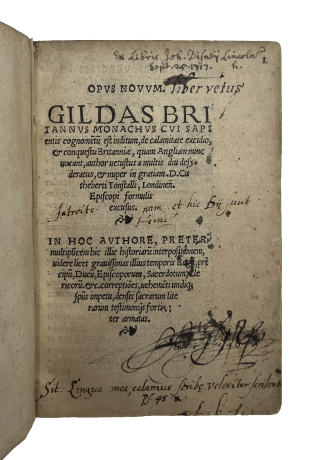 Ex Libris Joh. Disney Lincoln
Sept. 25. 1717.
OPUS NOVUM. liber vetus
GILDAS BRI
TANNVS MONACHVS CVI SAPI
entis cognomētū est inditum, de calamitate excidio,
& conquestu Britanniæ, quam Angliam nunc
vocant, author vetustus a multis diu desy-
deratus, & nuper in gratiam .D. Cu
theberti Tonstalli, Londinen.
Episcopi formulis
excusus.
Introite nam et hic Dij sunt
IN HOC AVTHORE, PRETER
multiplicem hic illic historiarū interpositionem,
videre licet grauissimas illius temporis Regū, prę
cipū, Ducū, Episcoporum, Sacerdotum, Cle
ricorū. &c. correptiões, vehemēti undiq;
spūs impetu, densis sacrarum lite
rarum testimonijs forti-
ter armatas.
Sit Lingua mea, calamus scribę velociter scribentis
Ps 45